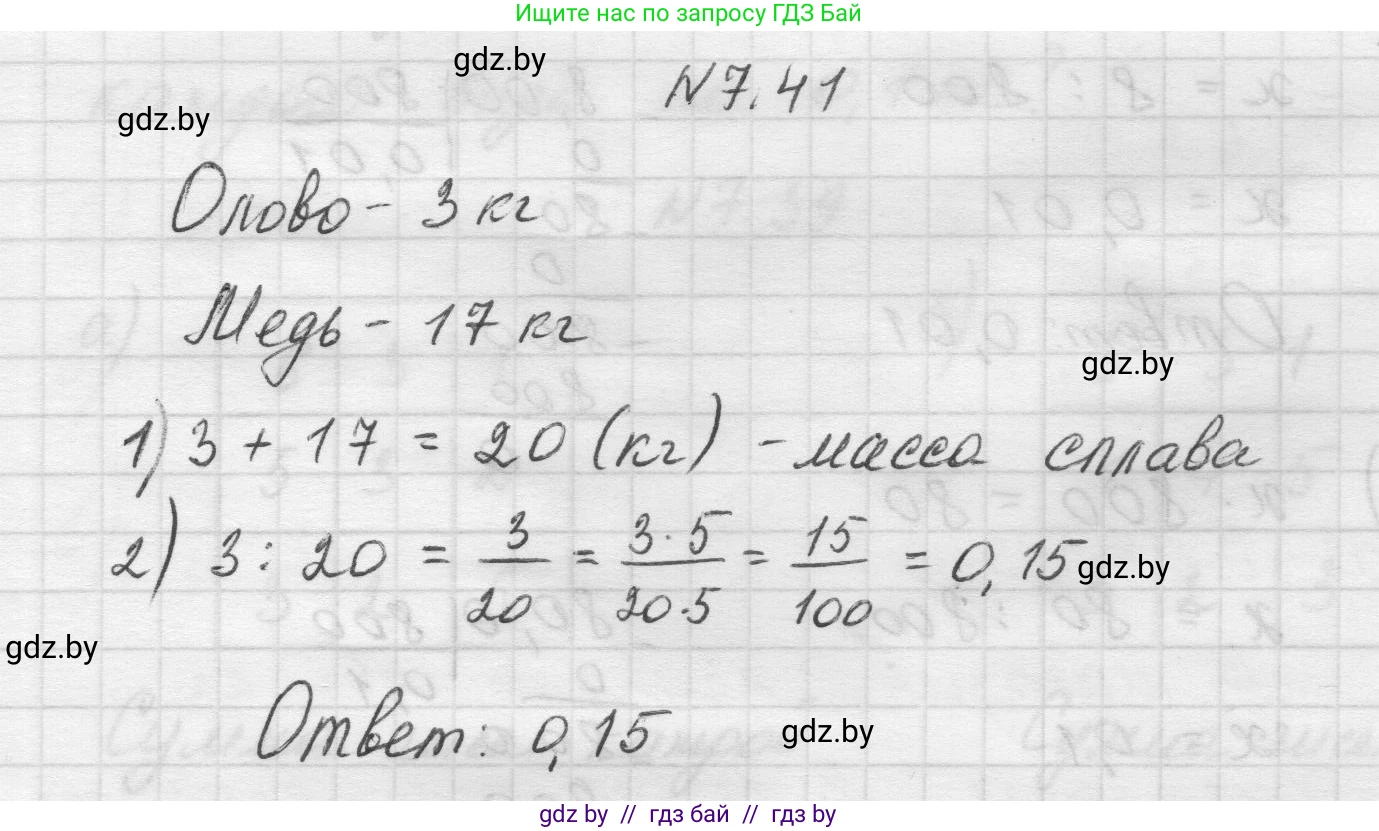 Ищите нас по запросу ГДЗ Бай
gdz.by
N 7.41
gdz.by
Олово - 3 кг
Медь - 17 кг
gdz.by
1) 3 + 17 = 20 (кг) - масса сплава
2) 3 : 20 = 3/20 = 3·5/20·5 = 15/100 = 0,15
gdz.by
gdz.by
Ответ: 0,15
gdz.by
gdz by // гдз бай // gdz by